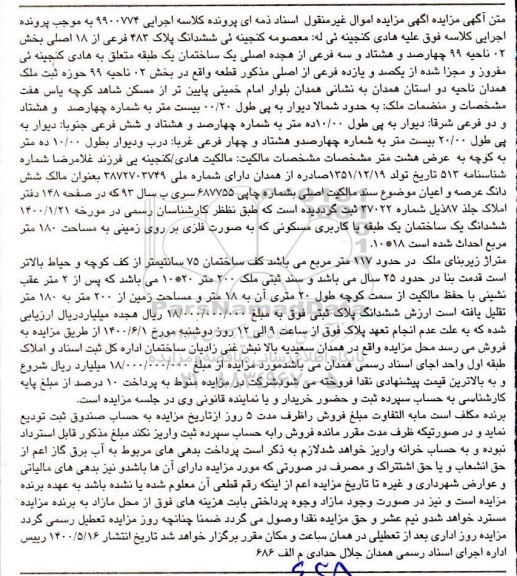 متن آگهی مزایده اگهی مزایده اموال غیرمنقول اسناد ذمه ای پرونده کلاسه اجرایی ۹۹۰۰۷۷۴ به موجب پرونده
اجرایی کلاسه فوق علیه هادی کنجینه ئی له: معصومه کنجینه ئی ششدانگ پلاک ۴۸۳ فرعی از ۱۸ اصلی بخش
۰۲ ناحیه ۹۹ چهارصد و هشتاد و سه فرعی از هجده اصلی یک ساختمان یک طبقه متعلق به هادی کنجینه ئی
مفروز و مجزا شده از یکصد و یازده فرعی از اصلی مذکور قطعه واقع در بخش ۰۲ ناحیه ۹۹ حوزه ثبت ملک
همدان ناحیه دو استان همدان به نشانی همدان بلوار امام خمینی پایین تر از مسکن شاهد کوچه یاس هفت
مشخصات و منضمات ملک: به حدود شمالا دیوار به پی طول ۰۰/۲۰ بیست متر به شماره چهارصد و هشتاد
و دو فرعی شرقا: دیوار به پی طول ۱۰/۰۰ده متر به شماره چهارصد و هشتاد و شش فرعی جنوبا: دیوار به
پی طول ۲۰/۰۰ بیست متر به شماره چهارصدو هشتاد و چهار فرعی غربا: درب ودیوار بطول ۱۰/۰۰ ده متر
به کوچه به عرض هشت متر مشخصات مشخصات مالکیت: مالکیت هادی/کنجینه یی فرزند غلامرضا شماره
شناسنامه ۵۱۳ تاریخ تولد ۱۳۵۱/۱۲/۱۹صادره از همدان دارای شماره ملی ۳۸۷۲۷۰۳۷۴۹ بعنوان مالک شش
دانگ عرصه و اعیان موضوع سند مالکیت اصلی بشماره چاپی ۶۸۷۷۵۵ سری ب سال ۹۳ که در صفحه ۱۴۸ دفتر
املاک جلد ۸۷ذیل شماره ۲۷۰۲۲ ثبت گرددیده است که طبق نظظر کارشناسان رسمی در مورخه ۱۴۰۰/۱/۲۱
ششدانگ یک ساختمان یک طبقه با کاربری مسکونی که به صورت فلزی بر روی زمینی به مساحت ۱۸۰ متر
مربع احداث شده است ۱۸*۱۰.
متراژ زیربنای ملک در حدود ۱۱۷ متر مربع می باشد کف ساختمان ۷۵ سانتیمتر از کف کوچه و حیاط بالاتر
است قدمت بنا در حدود ۲۵ سال می باشد و سند ثبتی ملک ۲۰۰ متر ۲۰*۱۰ می باشد که پس از ۲ متر عقب
نشینی با حفظ مالکیت از سمت کوچه طول ۲۰ متری آن به ۱۸ متر و مساحت زمین از ۲۰۰ متر به ۱۸۰ متر
تقلیل یافته است ارزش ششدانگ پلاک ثبتی فوق به مبلغ ۱۸/۰۰۰/۰۰۰/۰۰۰ ریال هجده میلیاردریال ارزیابی
شده که به علت عدم انجام تعهد پلاک فوق از ساعت ۹ الی ۱۲ روز دوشنبه مورخ ۱۴۰۰/۶/۱ از طریق مزایده به
فروش می رسد محل مزایده واقع در همدان سعیدیه بالا نبش غنی زادیان ساختمان اداره کل ثبت اسناد و املاک
طبقه اول واحد اجرای اسناد رسمی همدان می باشدمورد مزایده از مبلغ ۱۸/۰۰۰/۰۰۰/۰۰۰ میلیارد ریال شروع
و به بالاترین قیمت پیشنهادی نقدا فروخته می شودشرکت در مزایده منوط به پرداخت ۱۰ درصد از مبلغ پایه
کارشناسی به حساب سپرده ثبت و حضور خریدار و یا نماینده قانونی وی در جلسه مزایده است.
برنده مکلف است مابه التفاوت مبلغ فروش راظرف مدت ۵ روز ازتاریخ مزایده به حساب صندوق ثبت تودیع
نماید و در صورتیکه ظرف مدت مقرر مانده فروش رابه حساب سپرده ثبت واریز نکند مبلغ مذکور قابل استرداد
نبوده و به حساب خزانه واریز خواهد شدلازم به ذکر است پرداخت بدهی های مربوط به آب برق گاز اعم از
حق انشعاب و یا حق اشتتراک و مصرف در صورتی که مورد مزایده دارای آن ها باشدو نیز بدهی های مالیاتی
و عوارض شهرداری و غیره تا تاریخ مزایده اعم از اینکه رقم قطعی آن معلوم شده یا نشده باشد به عهده برنده
مزایده است و نیز در صورت وجود مازاد وجوه پرداختی بابت هزینه های فوق از محل مازاد به برنده مزایده
مسترد خواهد شدو نیم عشر و حق مزایده نقدا وصول می گردد ضمنا چنانچه روز مزایده تعطیل رسمی گردد
مزایده روز اداری بعد از تعطیلی در همان ساعت و مکان مقرر برگزار خواهد شد تاریخ انتشار ۱۴۰۰/۵/۱۶ رییس
اداره اجرای اسناد رسمی همدان جلال حدادی م الف ۶۸۶